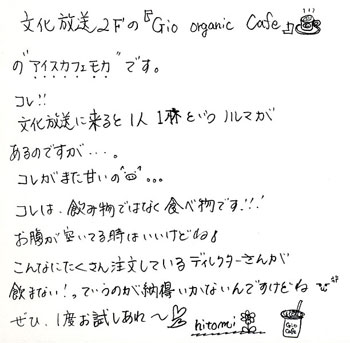 文化放送2Fの『Gio organic Cafe』
の"アイスカフェモカ"です。
コレ!!
文化放送に来ると1人1杯というノルマが
あるのですが・・・。
コレがまた甘いの。。。
コレは、飲み物ではなく食べ物です!!!
お腹が空いてる時はいいけどね♪
こんなにたくさん注文しているディレクターさんが
飲まない!っていうのが納得いかないんですけどね
ぜひ、1度お試しあれ〜
hitomi
Gio Cafe